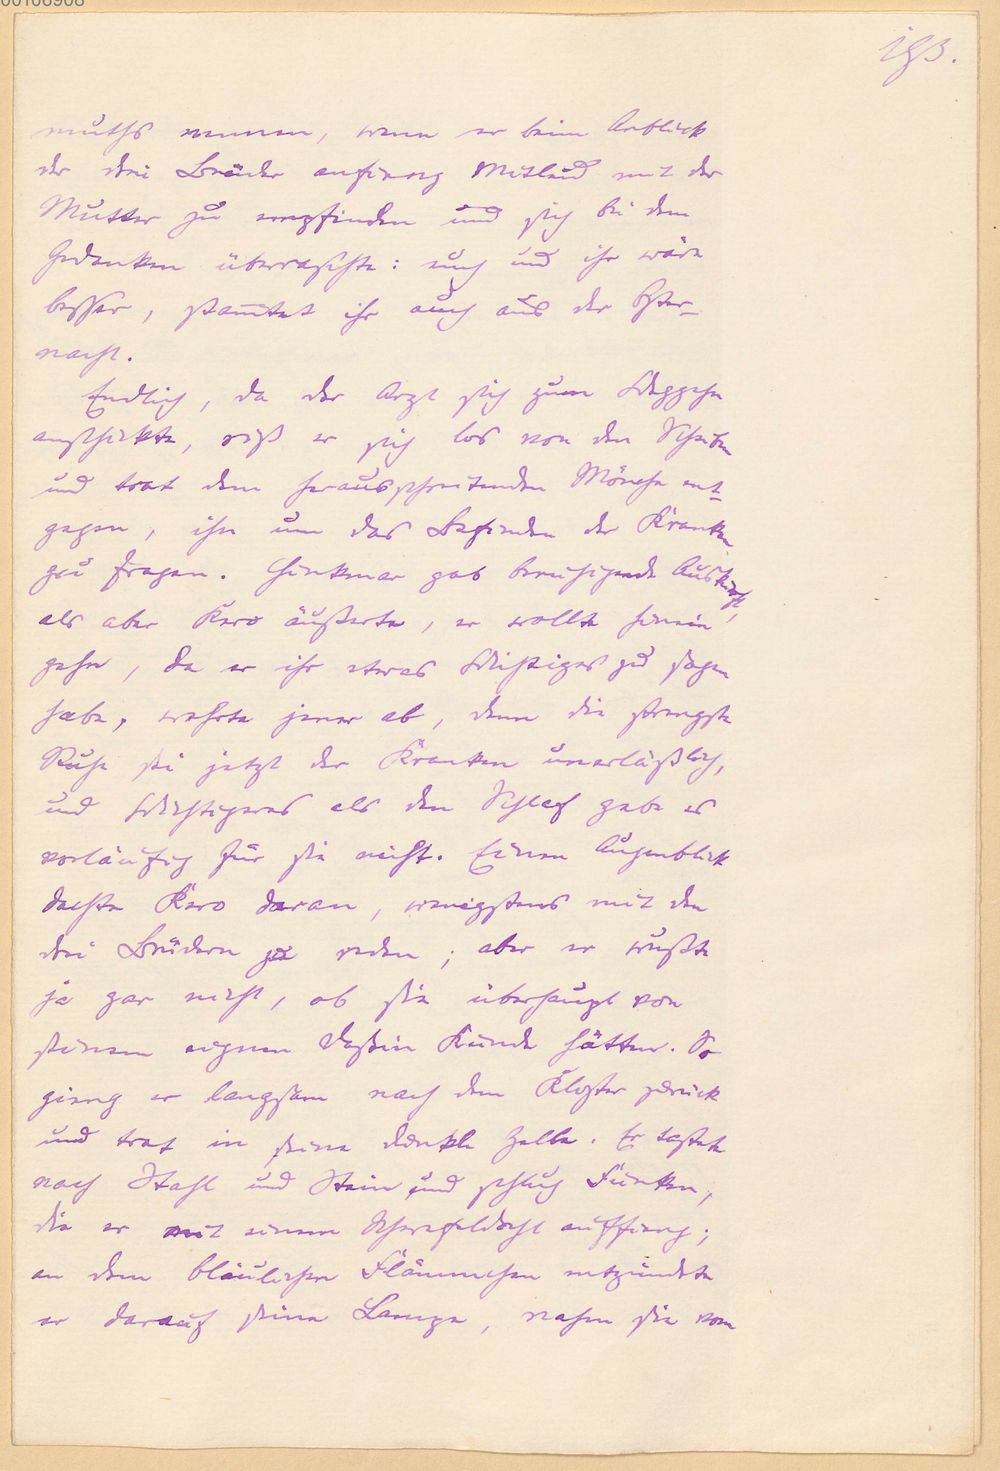 00106908
193.
muths nennen, wenn er beim Anblick
der drei Brüder anfieng Mitleid mit der
Mutter zu empfinden und sich bei dem
Gedanken überraschte: euch und ihr wäre
besser, stam̅tet ihr auch aus der Oster-
nacht.
Endlich, da der Arzt sich zum Weggehn
anschickte, riß er sich los von den Scheiben
und trat dem herausschreitenden Mönche ent-
gegen, ihn um das Befinden der Kranken
zu fragen. Hinkmar gab beruhigende Auskunft,
als aber Kero äußerte, er wollte hinein
gehn, da er ihr etwas Wichtiges zu sagen
habe, wehrte jener ab, denn die strengste
Ruhe sei jetzt der Kranken unerläßlich,
und Wichtigeres als den Schlaf gebe es
vorläufig für sie nicht. Einen Augenblick
dachte Kero daran, wenigstens mit den
drei Brüdern zu reden; aber er wußte
ja gar nicht, ob sie überhaupt von
seinem eignen Dasein Kunde hätten. So
gieng er langsam nach dem Kloster zurück
und trat in seine dunkle Zelle. Er tastete
nach Stahl und Stein und schlug Funken,
die er mit einem Schwefeldocht auffieng;
an dem bläulichen Flämmchen entzündete
er darauf seine Lampe, nahm sie vom